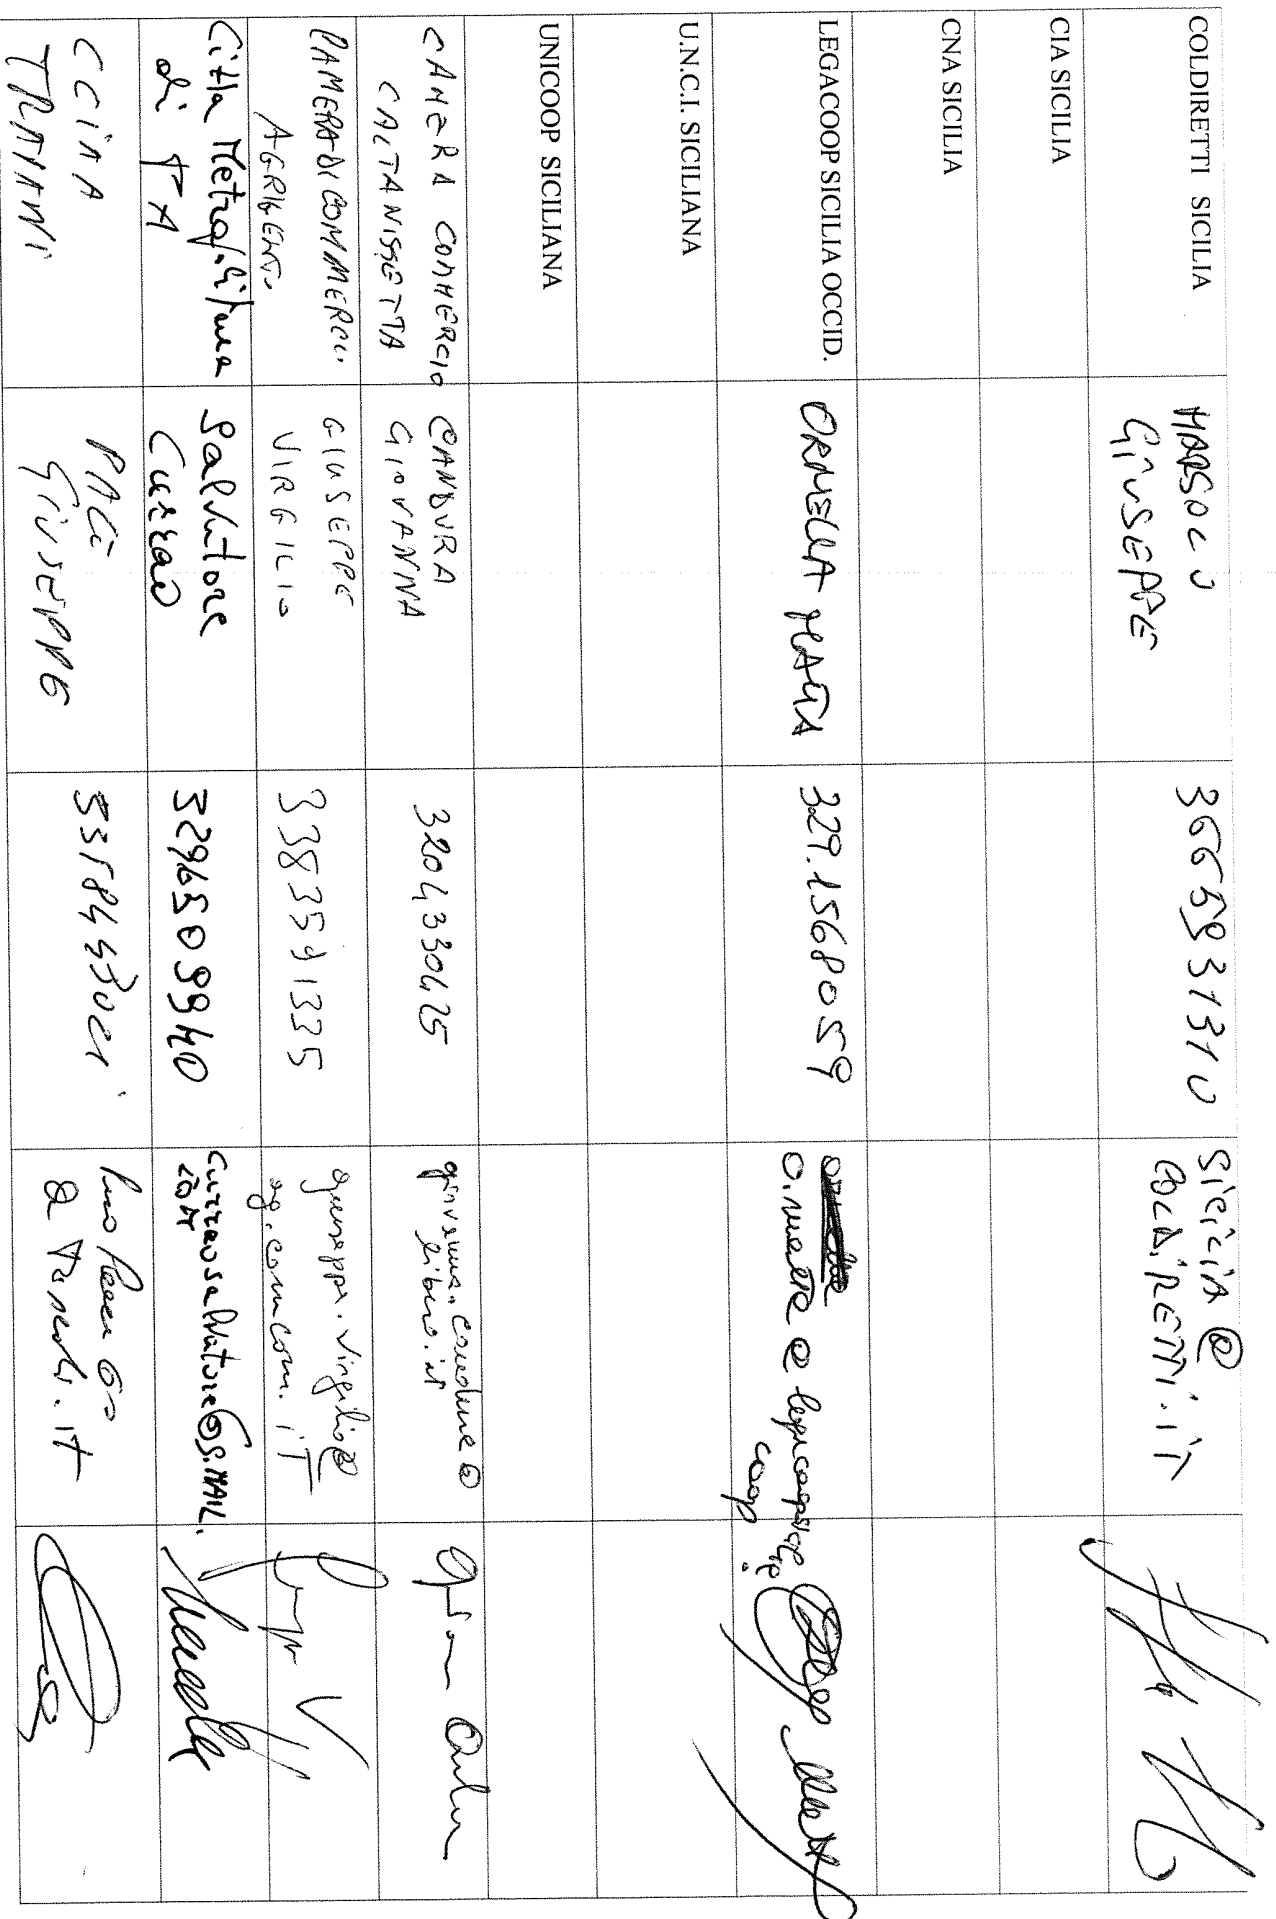 COLDIRETTI SICILIA
GIUSEPPE
3666931310
SICILIA @
COLDIRETTI.IT
CIA SICILIA
CNA SICILIA
LEGACOOP SICILIA OCCID.
ORNELLA MATTA
329.1568059
U.N.C.I. SICILIANA
UNICOOP SICILIANA
CAMERA COMMERCIO
CALTANISSETTA
CANDURA
GIOVANNA
3204330425
giovanna.candura @
libero.it
CAMERA DI COMMERCIO
AGRIGENTO
GIUSEPPE
VIRGILIO
3383591335
giuseppe.virgilio@
ag.camcom.it
Città Metropolitana
di PA
Salvatore
Currao
3296509940
Curraosalvatore@GMAIL.
COM
CCIAA
TRAPANI
PACE
GIUSEPPE